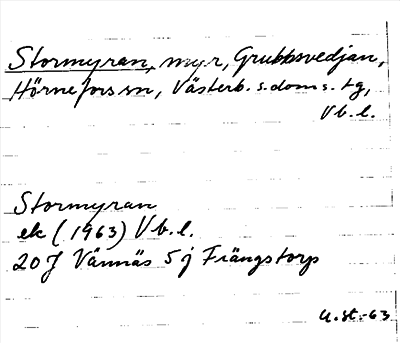 Stormyran, myr, Grubbsvedjan,
Hörnefors sn, Västerb. s. doms. tg,
Vb. l.
Stormyran
ek (1963) Vb. l.
20J Vännäs 5j Frängstorp
U.st.-63